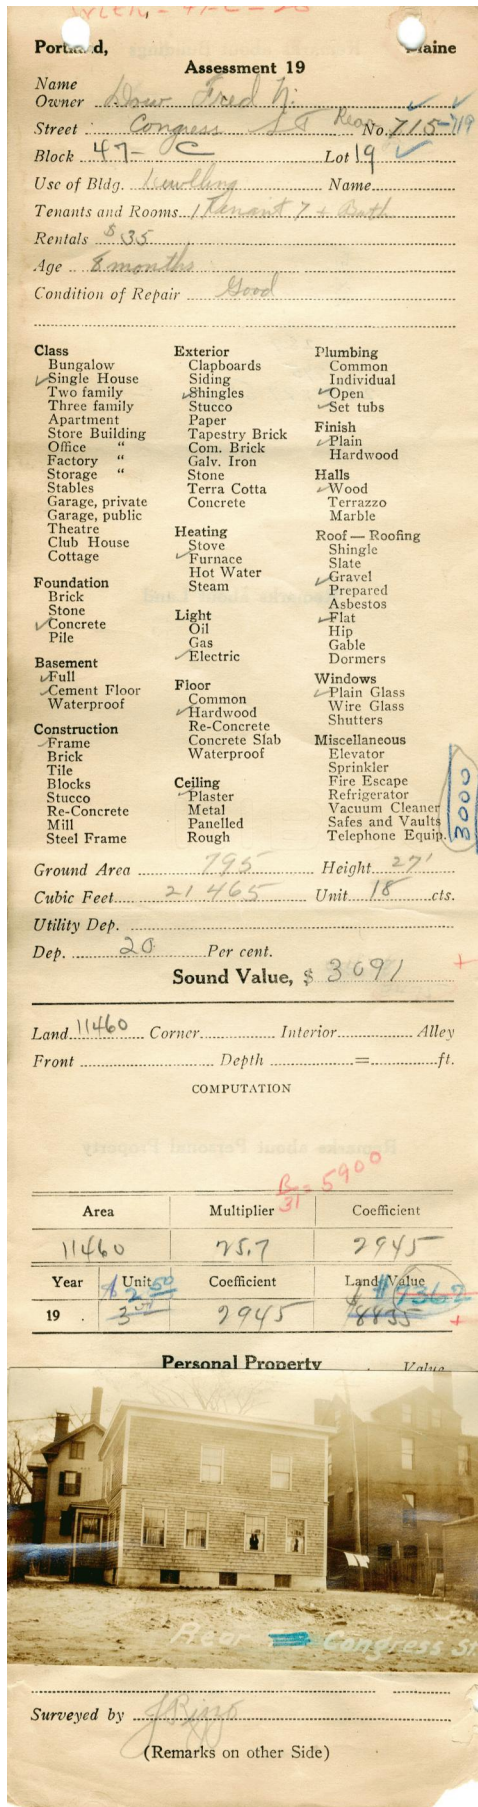 Portland, Maine
Assessment 19
Name
Owner Drew Fred N.
Street Congress ST Rear No. 715-719
Block 47- C Lot 19
Use of Bldg. Dwelling Name
Tenants and Rooms 1 Tenant 7 + Bath
Rentals $35
Age 8 months
Condition of Repair Good
Class
Bungalow
Single House
Two family
Three family
Apartment
Store Building
Office "
Factory "
Storage "
Stables
Garage, private
Garage, public
Theatre
Club House
Cottage
Foundation
Brick
Stone
Concrete
Pile
Basement
Full
Cement Floor
Waterproof
Construction
Frame
Brick
Tile
Blocks
Stucco
Re-Concrete
Mill
Steel Frame
Exterior
Clapboards
Siding
Shingles
Stucco
Paper
Tapestry Brick
Com. Brick
Galv. Iron
Stone
Terra Cotta
Concrete
Heating
Stove
Furnace
Hot Water
Steam
Light
Oil
Gas
Electric
Floor
Common
Hardwood
Re-Concrete
Concrete Slab
Waterproof
Ceiling
Plaster
Metal
Panelled
Rough
Plumbing
Common
Individual
Open
Set tubs
Finish
Plain
Hardwood
Halls
Wood
Terrazzo
Marble
Roof — Roofing
Shingle
Slate
Gravel
Prepared
Asbestos
Flat
Hip
Gable
Dormers
Windows
Plain Glass
Wire Glass
Shutters
Miscellaneous
Elevator
Sprinkler
Fire Escape
Refrigerator
Vacuum Cleaner
Safes and Vaults
Telephone Equip.
3000
Ground Area 795 Height 27'
Cubic Feet 21465 Unit 18 cts.
Utility Dep.
Dep. 20 Per cent.
Sound Value, $ 3091 +
Land 11460 Corner Interior Alley
Front Depth = ft.
COMPUTATION
B/31 = 5900
Area Multiplier Coefficient
11460 25.7 2945
Year Unit Coefficient Land Value
$2.50 $7362
19 3.00 2945 $8835 +
Personal Property Value
Rear Congress St
Surveyed by J Rizzo
(Remarks on other Side)